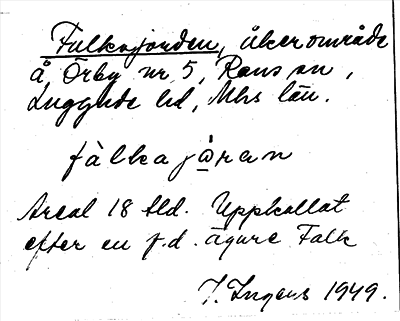 Falkajorden, åkerområde
å Örby nr 5, Raus sn,
Luggude hd, Mhs län.
fàlkajώ̲ran
Areal 18 tld. Uppkallat
efter en f.d. ägare Falk
J. Ingers 1949.